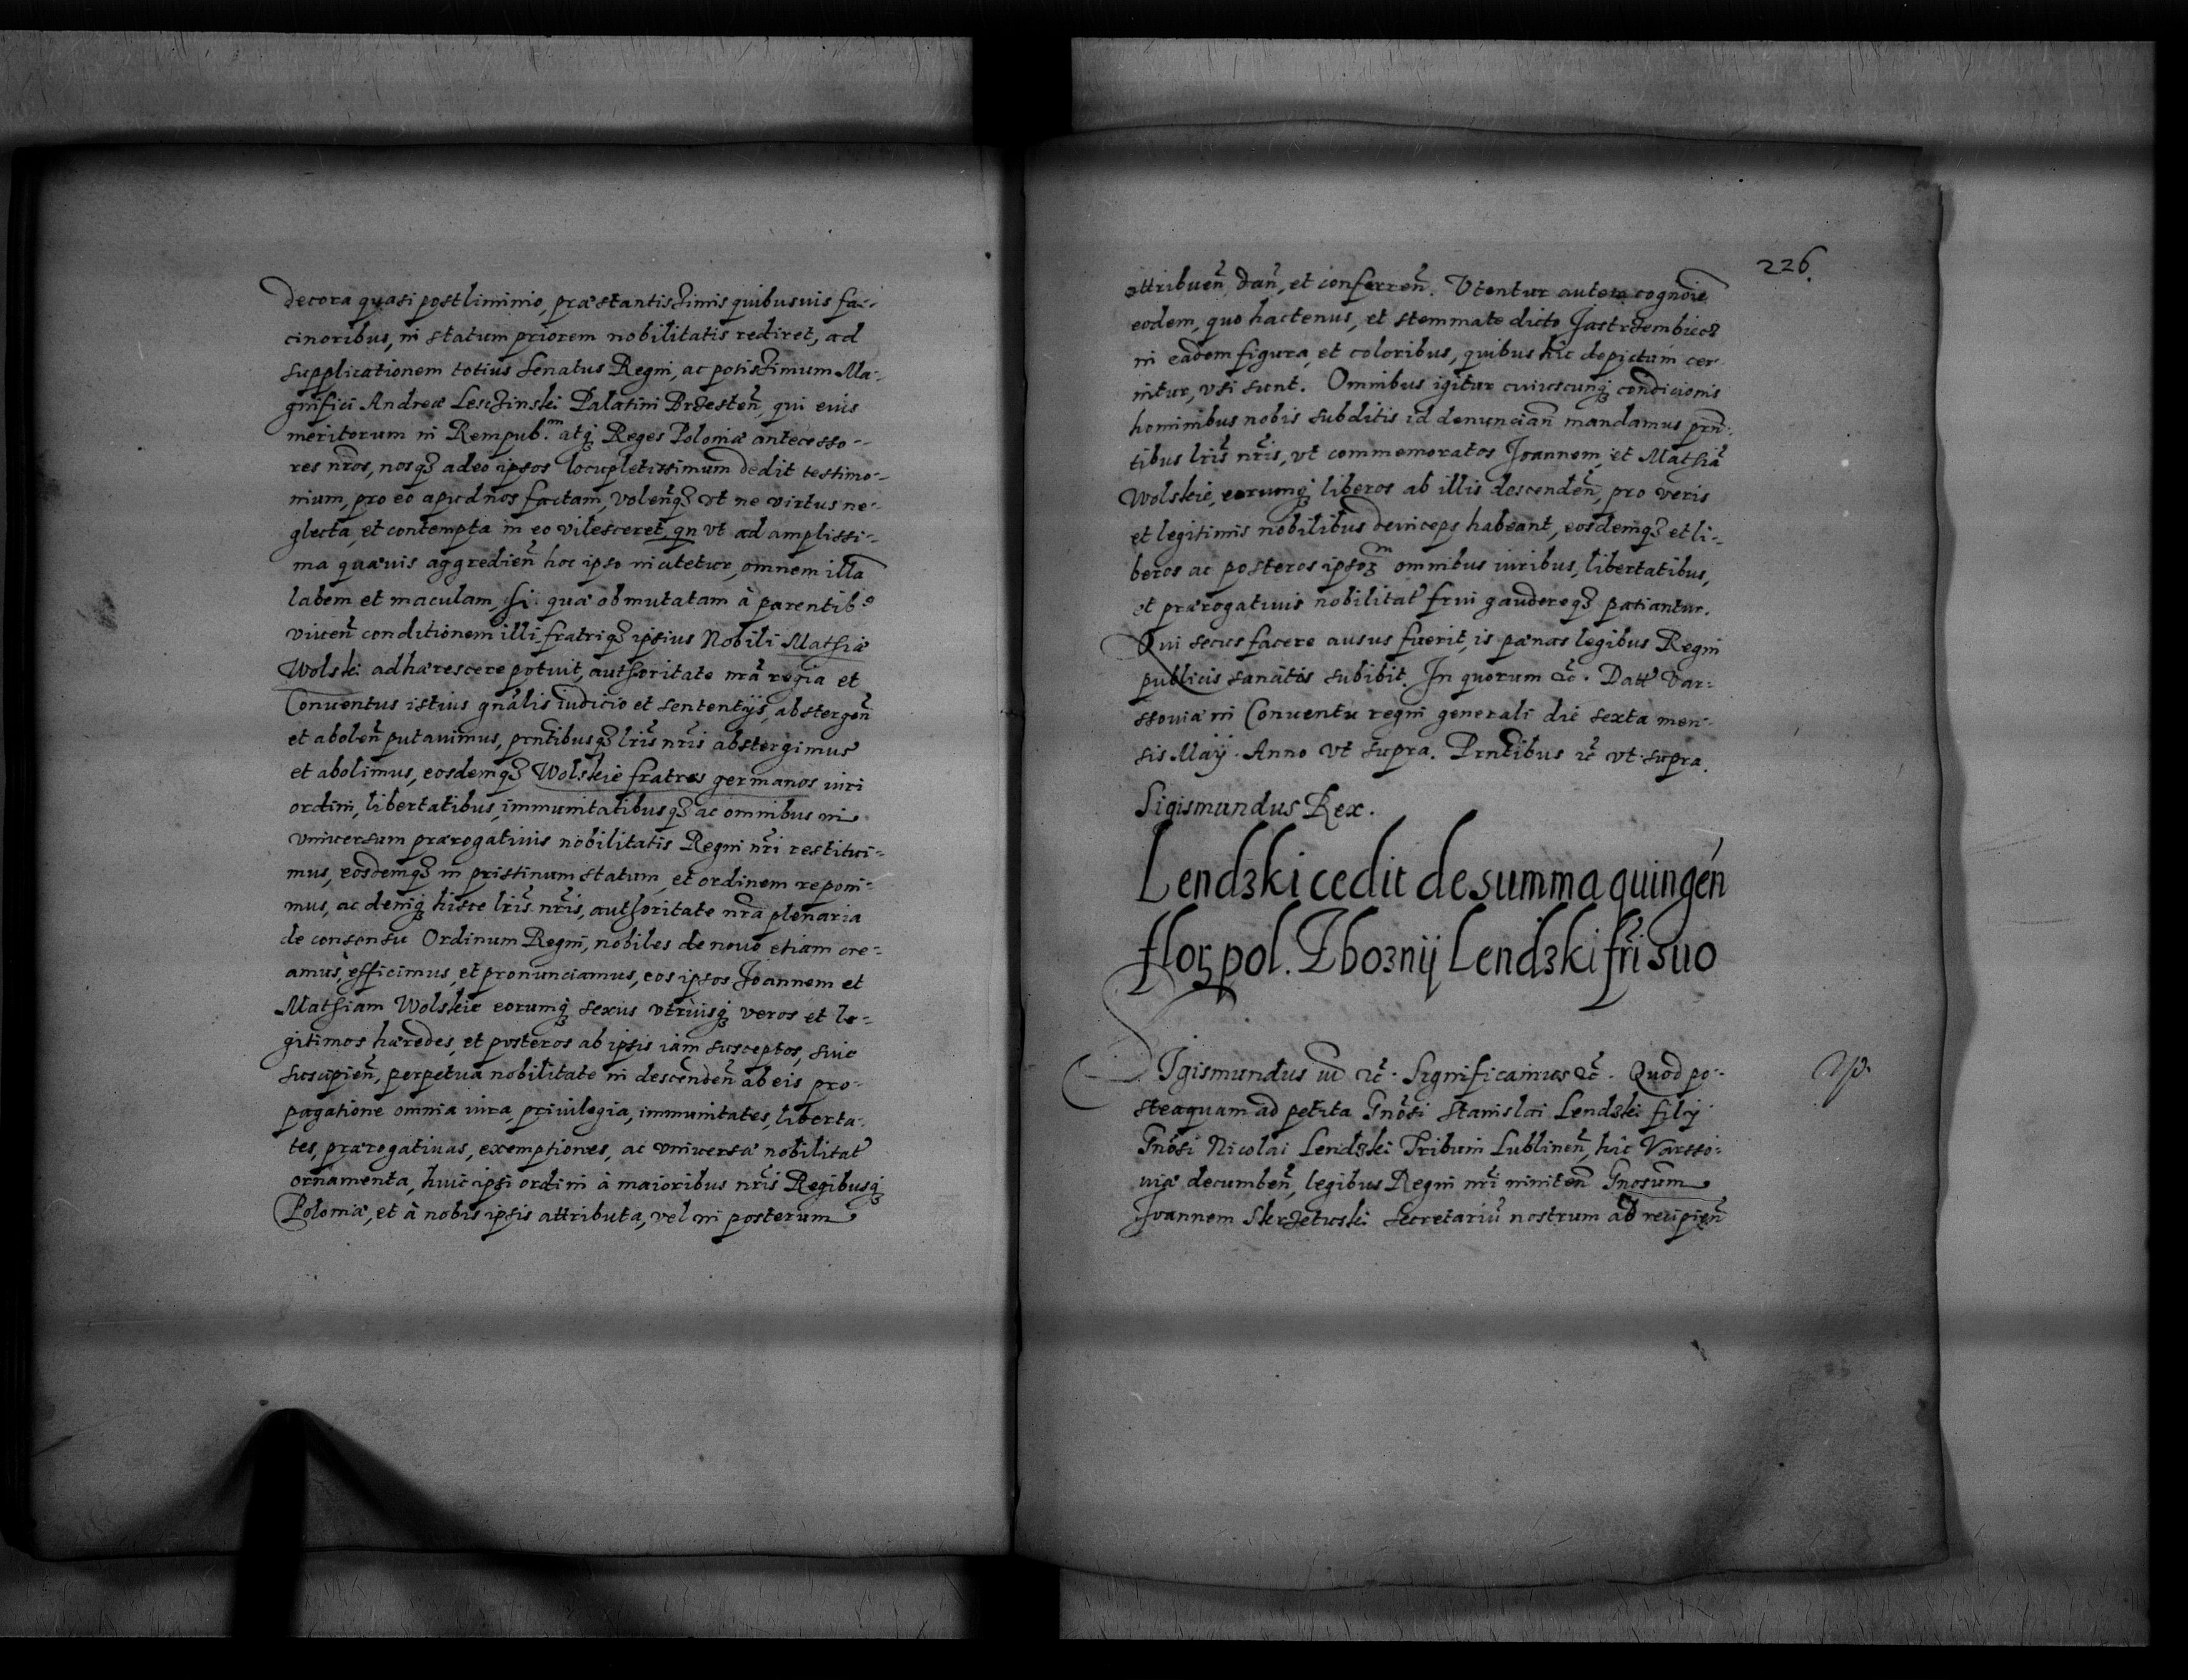 decora quasi postliminio, præstantissimis quibusuis fa-
cinoribus, in statum priorem nobilitatis rediret, ad
supplicationem totius Senatus Regni, ac potissimum Ma-
gnifici Andreæ Lesczinski Palatini Brzesteñ, qui eius
meritorum in Rempub.m atq3 Reges Poloniæ antecesso-
res nr̃os, nosq3 adeo ipsos locupletissimum dedit testimo-
nium, pro eo apud nos factam, voleñq3 vt ne virtus ne-
glecta, et contempta in eo vilesceret, qn vt ad amplissi-
ma quæuis aggredieñ hoc ipso incitetur, omnem illã
labem et maculam, si quæ ob mutatam à parentib9
viueñ conditionem illi fratriq3 ipsius Nobili Mathiæ
Wolski adhærescere potuit, authoritate nr̃a regia et
Conuentus istius gnãlis iudicio et sententijs, abstergeñ
et aboleñ putauimus, prñtibusq3 lr̃is nr̃is abstergimus
et abolimus, eosdemq3 Wolskie fratres germanos iuri
ordini, libertatibus, immunitatibusq3 ac omnibus in
vniuersum prærogatiuis nobilitatis Regni nr̃i restitui-
mus, eosdemq3 in pristinum statum, et ordinem reponi-
mus, ac deniq3 hisce lr̃is nr̃is, authoritate nr̃a plenaria
de consensu Ordinum Regni, nobiles de nouo etiam cre-
amus, efficimus, et pronunciamus, eos ipsos Joannem et
Mathiam Wolskie eorumq3 sexus vtriusq3 veros et le-
gitimos hæredes, et posteros ab ipsis iam susceptos, siue
suscipieñ, perpetua nobilitate in descendeñ ab eis pro-
pagatione omnia iura, priuilegia, immunitates, liberta-
tes, prærogatiuas, exemptiones, ac vniuersa nobilitat̃
ornamenta, huic ipsi ordini à maioribus nr̃is Regibusq3
Poloniæ, et à nobis ipsis attributa, vel in posterum
226.
attribueñ, dañ, et conferreñ. Vtentur autem cognõie
eodem, quo hactenus, et stemmate dicto Jastrzembiecz
in eadem figura, et coloribus, quibus hic depictum cer-
nitur, vsi sunt. Omnibus igitur cuiuscunq3 condicionis
hominibus nobis subditis id denunciañ mandamus prñ-
tibus lr̃is nr̃is, vt commemoratos Joannem, et Mathiã
Wolskie, eorumq3 liberos ab illis descendeñ, pro veris
et legitimis nobilibus deinceps habeant, eosdemq3 et li-
beros ac posteros ipsoꝝm omnibus iuribus, libertatibus,
et prærogatiuis nobilitat̃ frui gaudereq3 patiantur.
Qui secus facere ausus fuerit, is pænas legibus Regni
publicis sancitas subibit. In quorum &c̃. Datt̃ Var-
ssouiæ in Conuentu regni generali die sexta men-
sis Maÿ. Anno vt supra. Prñtibus &c̃ vt supra.
Sigismundus Rex.
Lendzki cedit de summa quingeń
floꝝ pol. Zboznij Lendzki fr̃i suo
SIgismundus iii &c̃. Significamus &c̃. Quod po-
steaquam ad petita Gnõsi Stanislai Lendzki filij
Gnõsi Nicolai Lendzki Tribuni Lublineñ, hic Varsso-
uiæ decumbeñ, legibus Regni nr̃i niniteñ Gnosum
Joannem Skrzetuski Secretariũ nostrum ad recipieñ